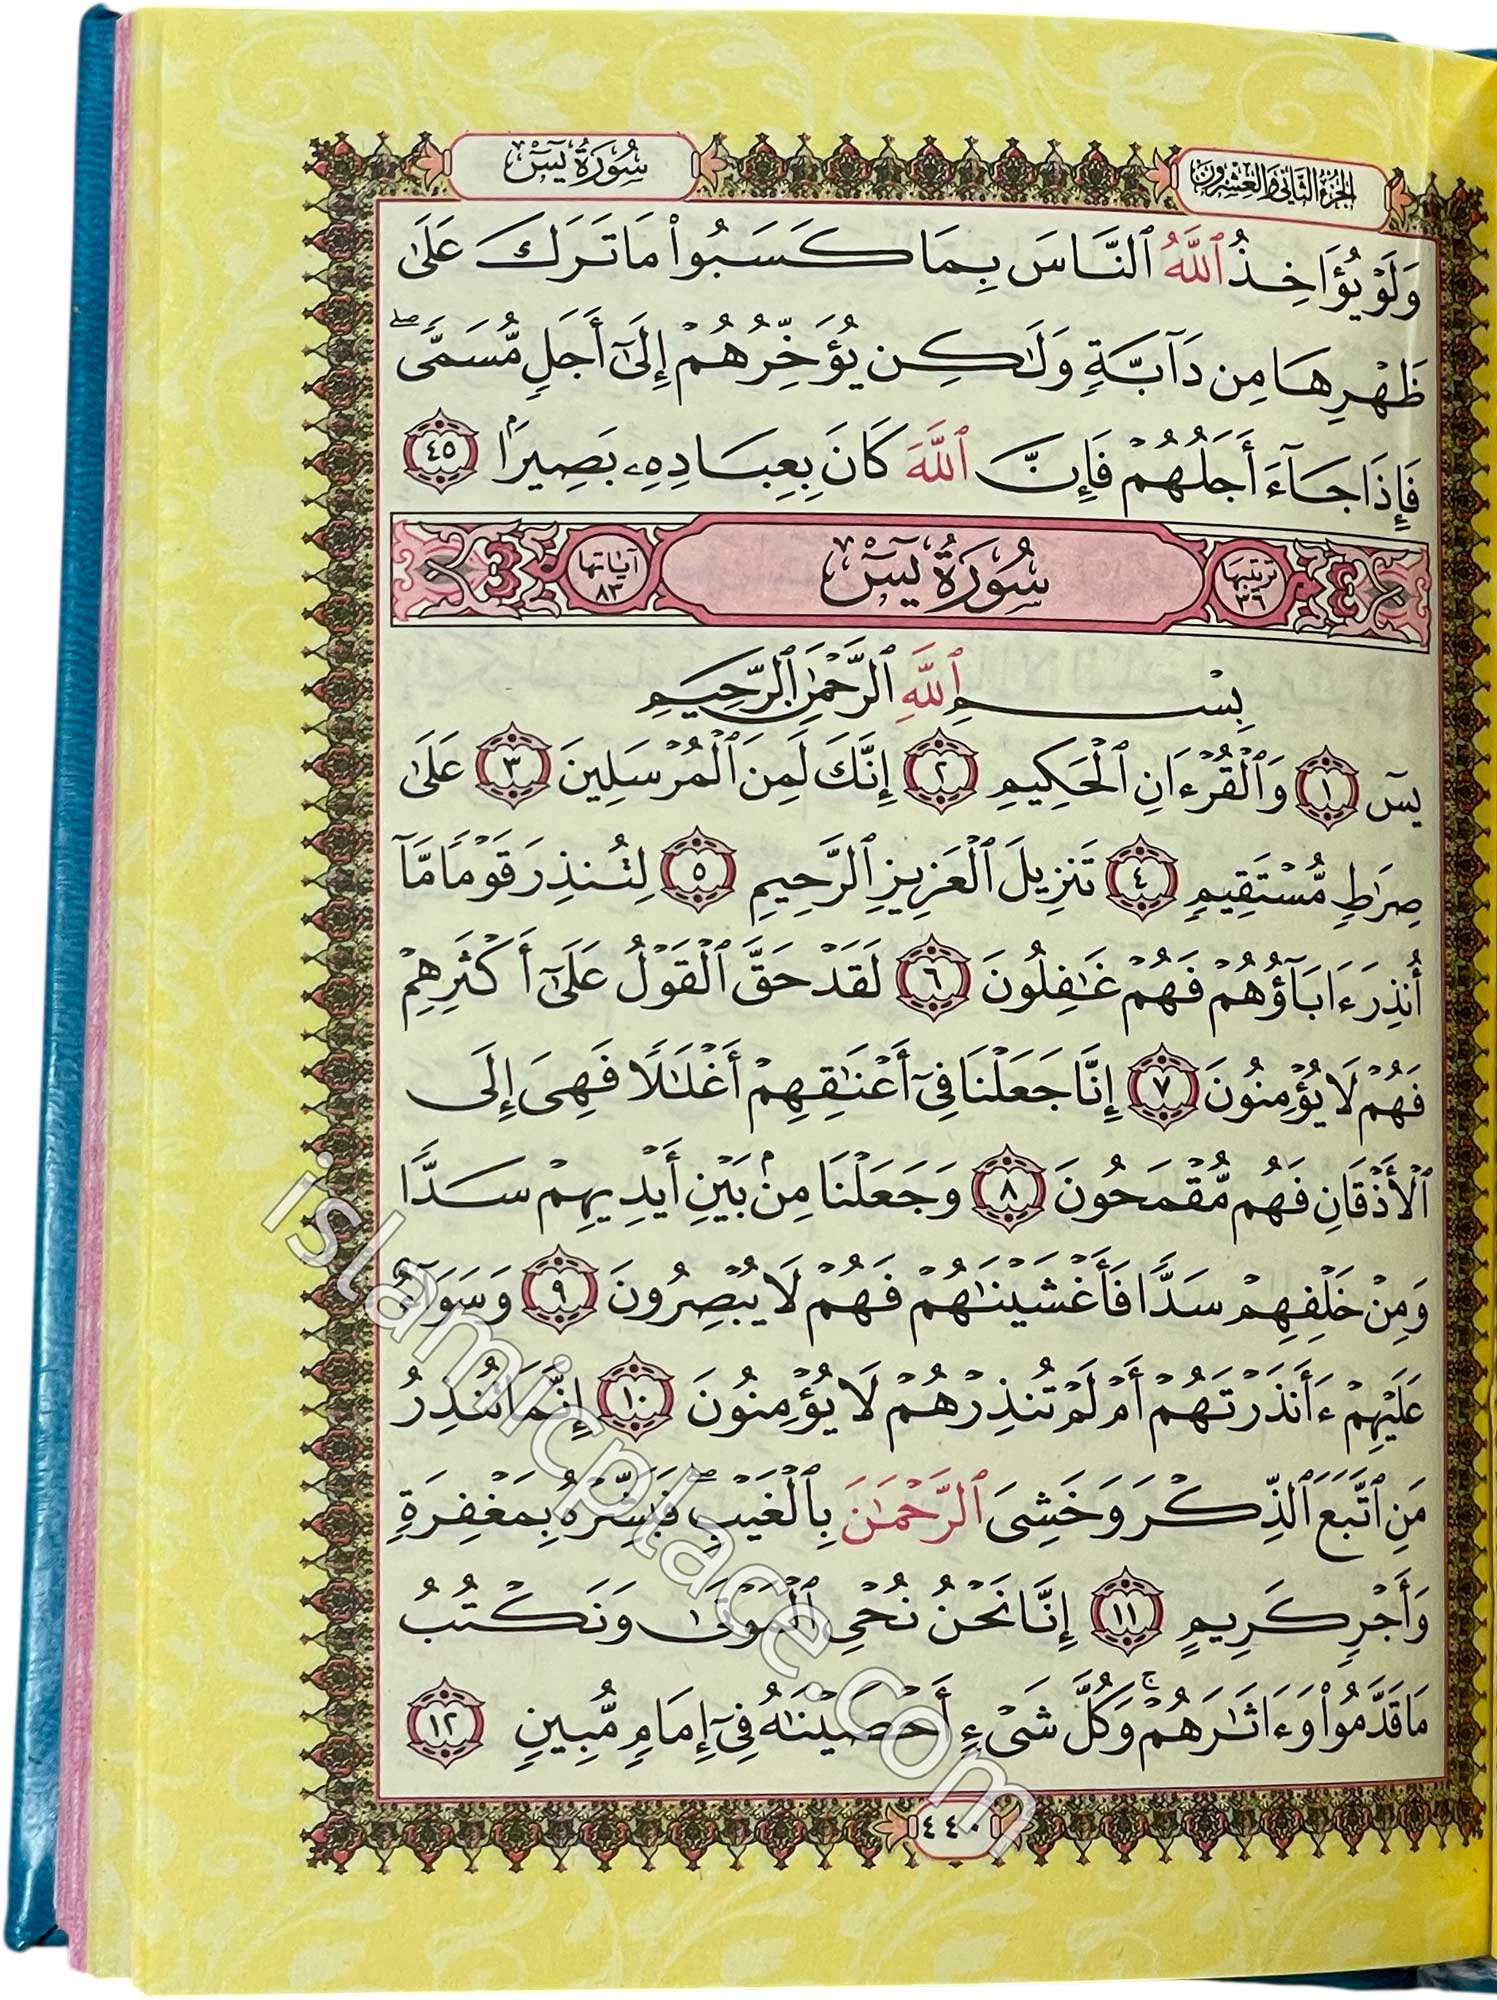 الجزء الثاني والعشرون
سورة يس
وَلَوْ يُؤَاخِذُ ٱللَّهُ ٱلنَّاسَ بِمَا كَسَبُوا۟ مَا تَرَكَ عَلَىٰ
ظَهْرِهَا مِن دَآبَّةٍ وَلَـٰكِن يُؤَخِّرُهُمْ إِلَىٰٓ أَجَلٍ مُّسَمًّى ۖ
فَإِذَا جَآءَ أَجَلُهُمْ فَإِنَّ ٱللَّهَ كَانَ بِعِبَادِهِۦ بَصِيرًۢا ٤٥
ترتيبها ٣٦ سُورَةُ يسٓ آياتها ٨٣
بِسْمِ ٱللَّهِ ٱلرَّحْمَـٰنِ ٱلرَّحِيمِ
يسٓ ١ وَٱلْقُرْءَانِ ٱلْحَكِيمِ ٢ إِنَّكَ لَمِنَ ٱلْمُرْسَلِينَ ٣ عَلَىٰ
صِرَٰطٍ مُّسْتَقِيمٍ ٤ تَنزِيلَ ٱلْعَزِيزِ ٱلرَّحِيمِ ٥ لِتُنذِرَ قَوْمًا مَّآ
أُنذِرَ ءَابَآؤُهُمْ فَهُمْ غَـٰفِلُونَ ٦ لَقَدْ حَقَّ ٱلْقَوْلُ عَلَىٰٓ أَكْثَرِهِمْ
فَهُمْ لَا يُؤْمِنُونَ ٧ إِنَّا جَعَلْنَا فِىٓ أَعْنَـٰقِهِمْ أَغْلَـٰلًا فَهِىَ إِلَى
ٱلْأَذْقَانِ فَهُم مُّقْمَحُونَ ٨ وَجَعَلْنَا مِنۢ بَيْنِ أَيْدِيهِمْ سَدًّا
وَمِنْ خَلْفِهِمْ سَدًّا فَأَغْشَيْنَـٰهُمْ فَهُمْ لَا يُبْصِرُونَ ٩ وَسَوَآءٌ
عَلَيْهِمْ ءَأَنذَرْتَهُمْ أَمْ لَمْ تُنذِرْهُمْ لَا يُؤْمِنُونَ ١٠ إِنَّمَا تُنذِرُ
مَنِ ٱتَّبَعَ ٱلذِّكْرَ وَخَشِىَ ٱلرَّحْمَـٰنَ بِٱلْغَيْبِ ۖ فَبَشِّرْهُ بِمَغْفِرَةٍ
وَأَجْرٍ كَرِيمٍ ١١ إِنَّا نَحْنُ نُحْىِ ٱلْمَوْتَىٰ وَنَكْتُبُ
مَا قَدَّمُوا۟ وَءَاثَـٰرَهُمْ ۚ وَكُلَّ شَىْءٍ أَحْصَيْنَـٰهُ فِىٓ إِمَامٍ مُّبِينٍ ١٢
٤٤٠
islamicplace.com